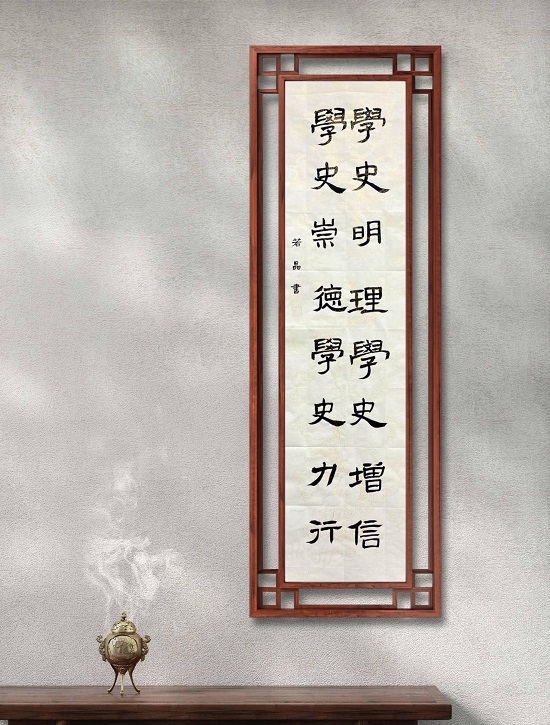 學史明理學史增信
學史崇德學史力行
若晶書